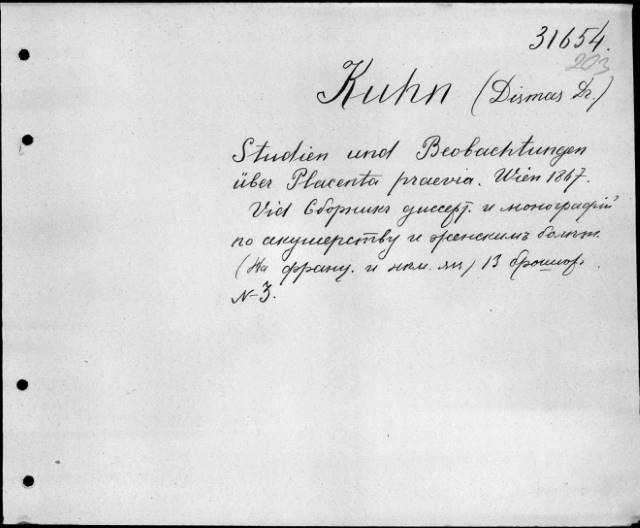 31654.
203
Kuhn (Dismas Dr.)
Studien und Beobachtungen
über Placenta praevia. Wien 1867.
Vid Сборникъ диссерт. и монографій
по акушерству и женскимъ болѣзн.
(На франц. и нѣм. яз) 13 брошюр.
№ 3.